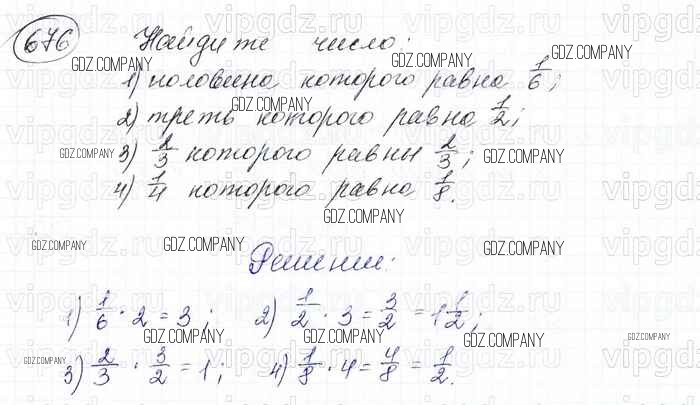 676 Найдите число:
1) половина которого равна 1/6;
2) треть которого равна 1/2;
3) 2/3 которого равны 2/3;
4) 1/4 которого равна 1/8.
Решение:
1) 1/6 · 2 = 3; 2) 1/2 · 3 = 3/2 = 1 1/2;
3) 2/3 · 3/2 = 1; 4) 1/8 · 4 = 4/8 = 1/2.
GDZ.COMPANY
vipgdz.ru